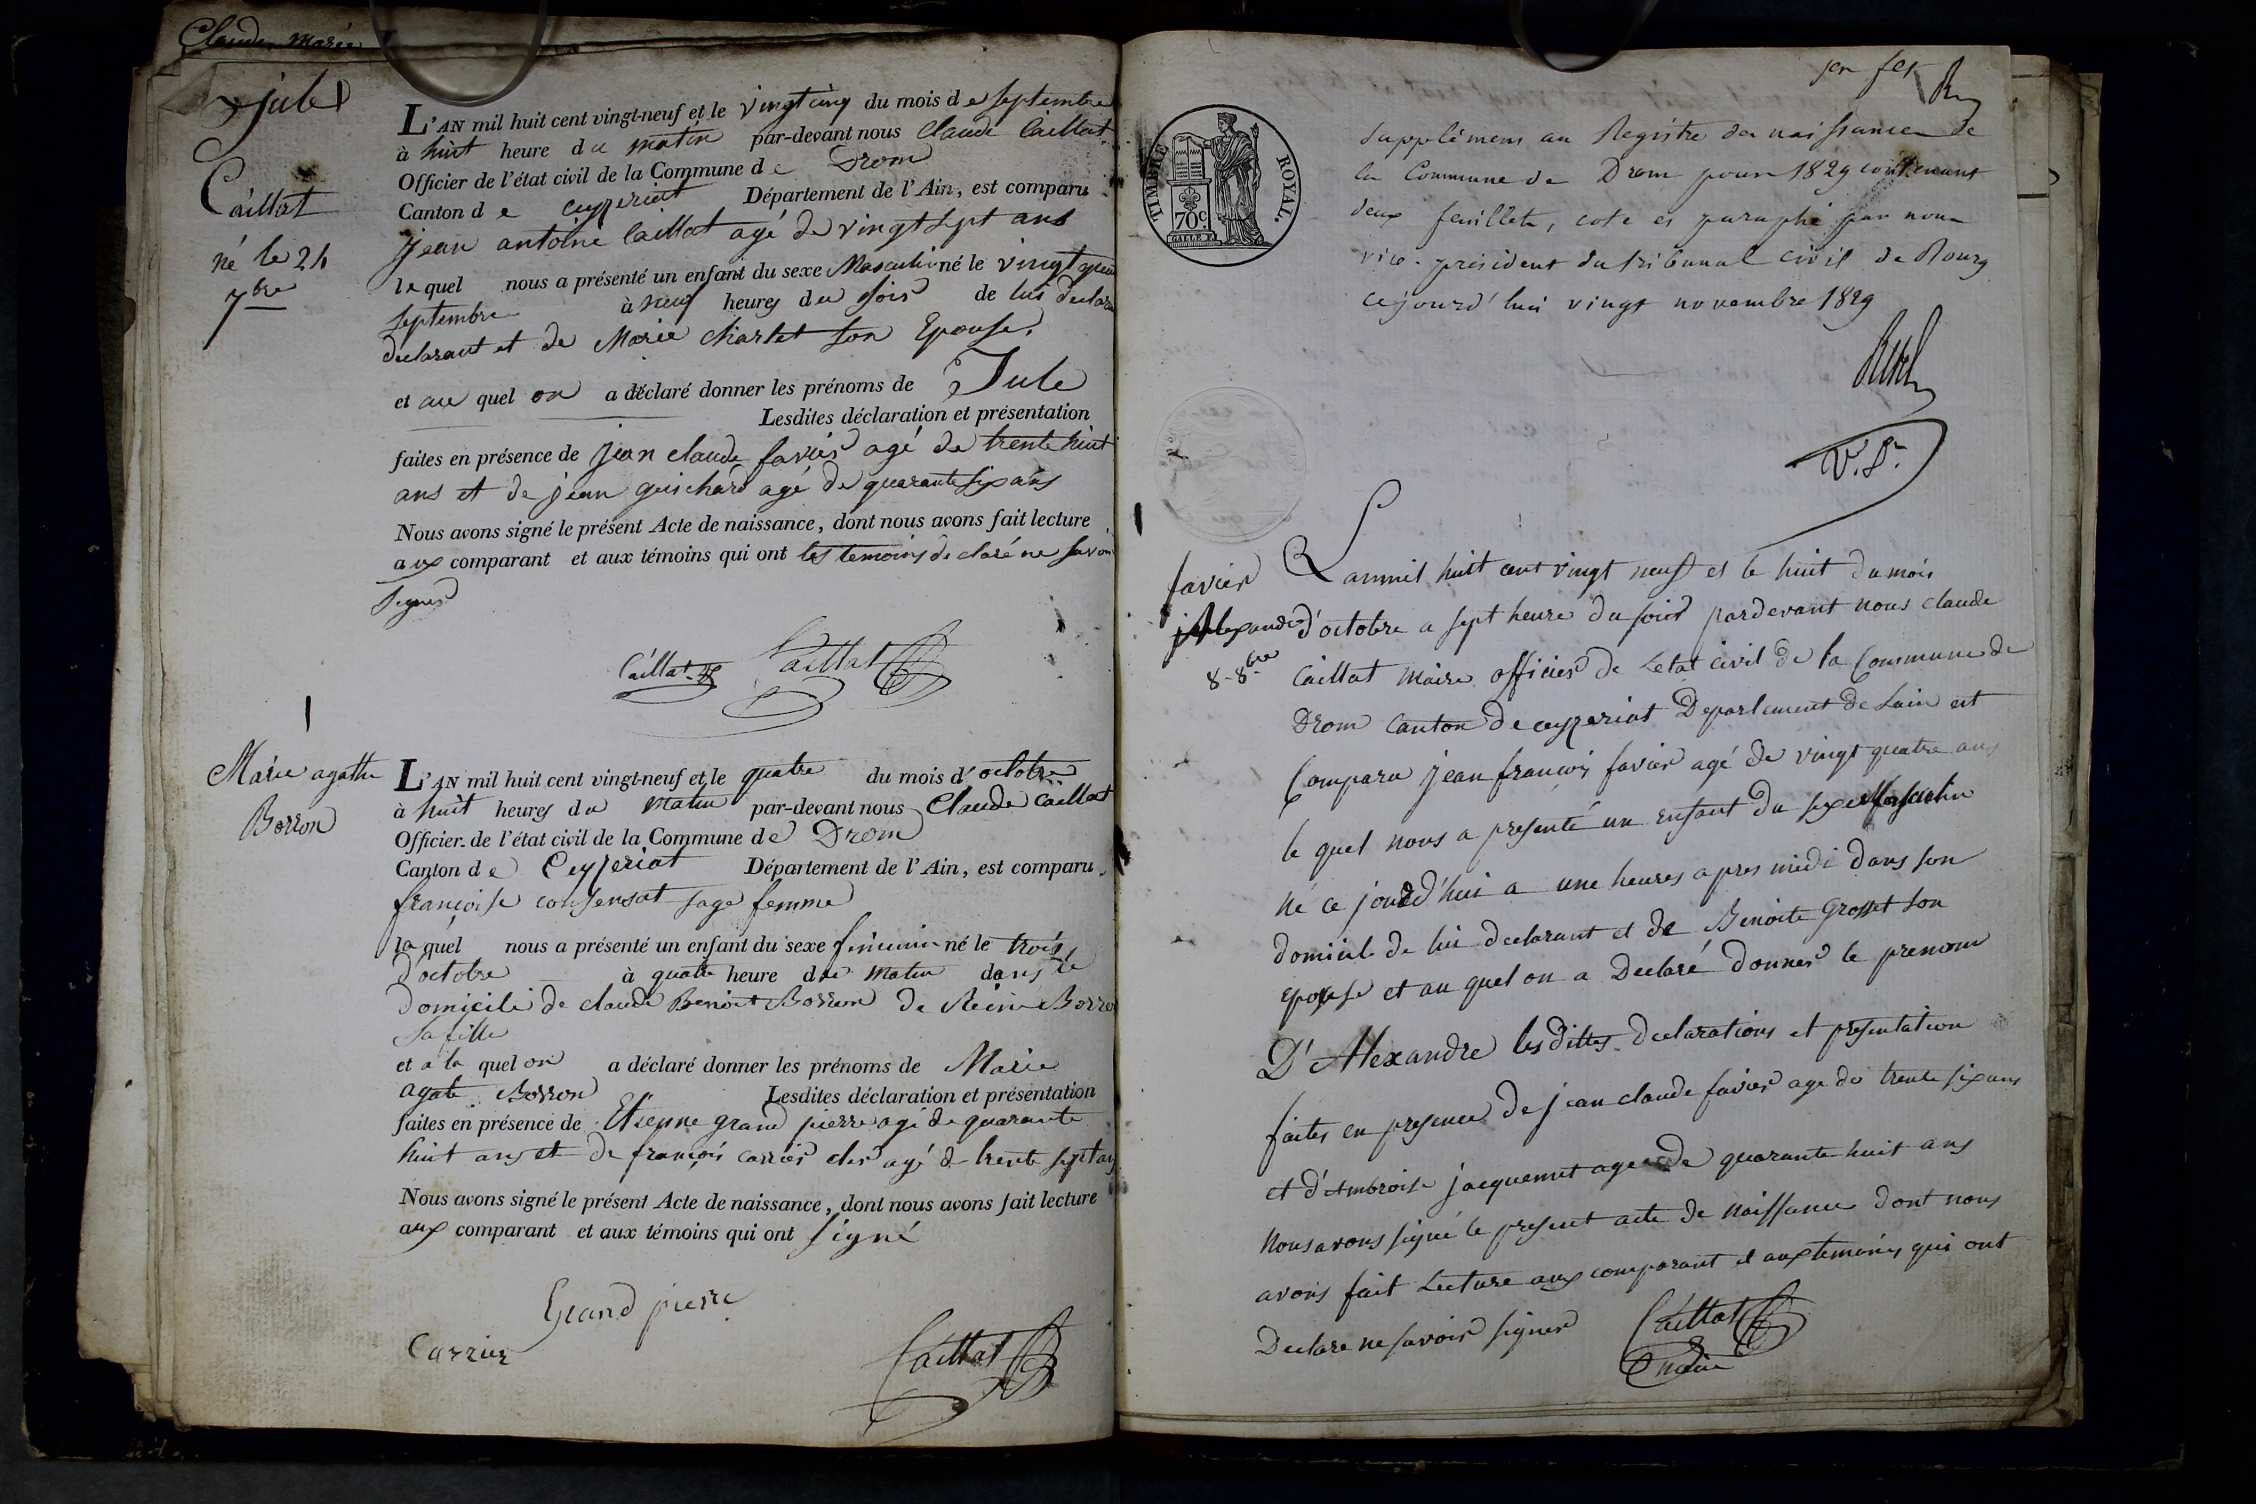 Claude Marie
jule
Caillat
né le 24
7bre
L'AN mil huit cent vingt-neuf et le vingt cinq du mois de septembre
à huit heure du matin par-devant nous Claude Caillat
Officier de l'état civil de la Commune de Drom
Canton de ceyzeriat Département de l'Ain, est comparu
jean antoine Caillat agé de vingt sept ans
lequel nous a présenté un enfant du sexe Masculin né le vingt quatre
septembre à neuf heures du soir de lui declara
declarant et de Marie Charlet son Epouse.
et au quel on a déclaré donner les prénoms de Jule
Lesdites déclaration et présentation
faites en présence de jean claude favier agé de trente huit
ans et de jean guichard agé de quarante six ans
Nous avons signé le présent Acte de naissance, dont nous avons fait lecture
aux comparant et aux témoins qui ont les temoins declaré ne savoir
signer
Caillat Caillat
Marie agathe
Borron
L'AN mil huit cent vingt-neuf et le quatre du mois d'octobre
à huit heures du matin par-devant nous Claude Caillat
Officier de l'état civil de la Commune de Drom
Canton de Ceyzeriat Département de l'Ain, est comparu
françoise convensat sage femme
laquel nous a présenté un enfant du sexe feminin né le trois
d'octobre à quatre heure du matin dans le
Domicile de claude Benoit Borron de Reine Borron
sa fille
et a la quel on a déclaré donner les prénoms de Marie
agate Borron Lesdites déclaration et présentation
faites en présence de Etienne grand pierre agé de quarante
huit ans et de françois carrier agé de trente sept ans
Nous avons signé le présent Acte de naissance, dont nous avons fait lecture
aux comparant et aux témoins qui ont signé
Grand pierre
Carrier Caillat
TIMBRE ROYAL.
70c.
Supplément au Registre de naissance de
la Commune de Drom pour 1829 contenant
deux feuillets, coté et paraphé par nous
vice-président du tribunal civil de Bourg
cejourd'hui vingt novembre 1829
V. P.
favier
Alexandre
8-8bre
Lanmil huit cent vingt neuf et le huit du mois
d'octobre a sept heure du soir pardevant nous claude
Caillat Maire officier de Letat civil de la Commune de
Drom Canton de ceyzeriat Departement de Lain est
Comparu jean françois favier agé de vingt quatre ans
le quel nous a presenté un enfant du sexe Masculin
né ce jourd'hui a une heures apres midi dans son
domicile de lui declarant et de Benoite Grosset son
epouse et au quel on a Declaré donner le prenom
D'Alexandre lesdittes declarations et presentation
faites en presence de jean claude favier age de trente six ans
et d'Ambroise jacquemet age de quarante huit ans
Nous avons signé le present acte de naissance dont nous
avons fait Lecture aux comparant et aux temoins qui ont
Declare ne savoir signer Caillat
maire